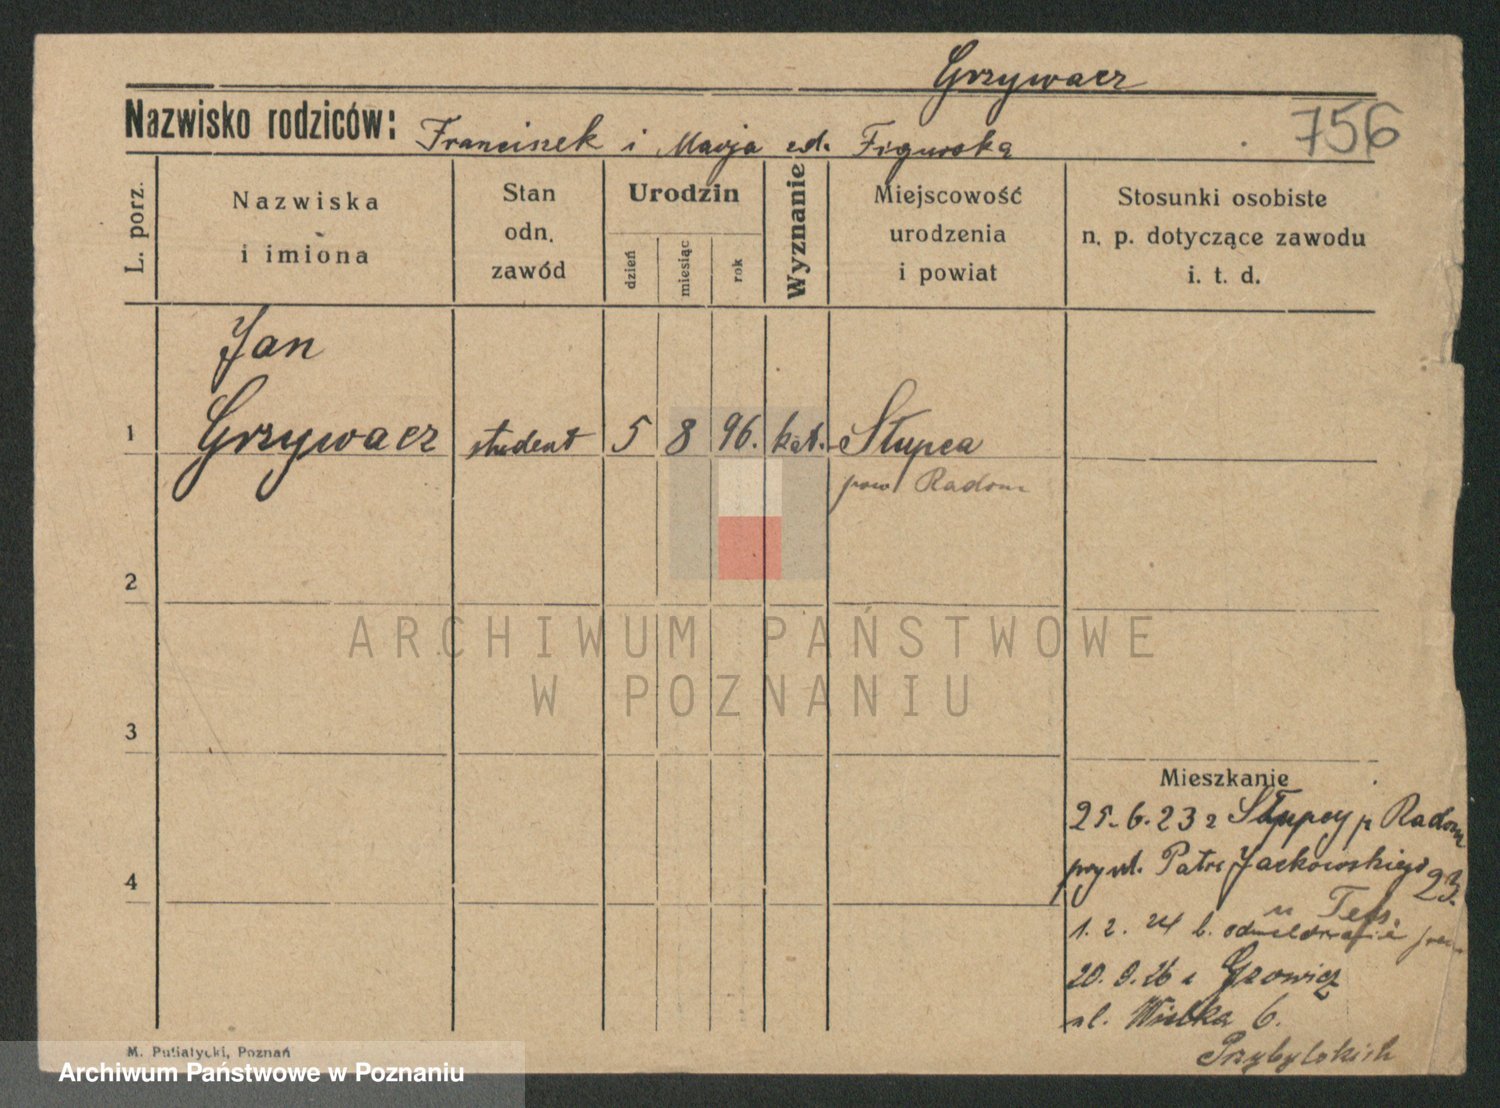 Grzywacz
756
Nazwisko rodziców: Franciszek i Marja zd. Figurską
L. porz.
Nazwiska
i imiona
Stan
odn.
zawód
Urodzin
dzień
miesiąc
rok
Wyznanie
Miejscowość
urodzenia
i powiat
Stosunki osobiste
n. p. dotyczące zawodu
i. t. d.
Jan
1 Grzywacz student 5 8 96. kat. Słupca
pow Radom
2
3
4
ARCHIWUM PAŃSTWOWE
W POZNANIU
Mieszkanie
25.6.23 z Słupcy p Radom
Patr. Jackowskiego 23.
1.2.24 b. odmeldowania
20.9.26 z
ul. Wielka 6.
Przybylskich
M. Putiatycki, Poznań
Archiwum Państwowe w Poznaniu